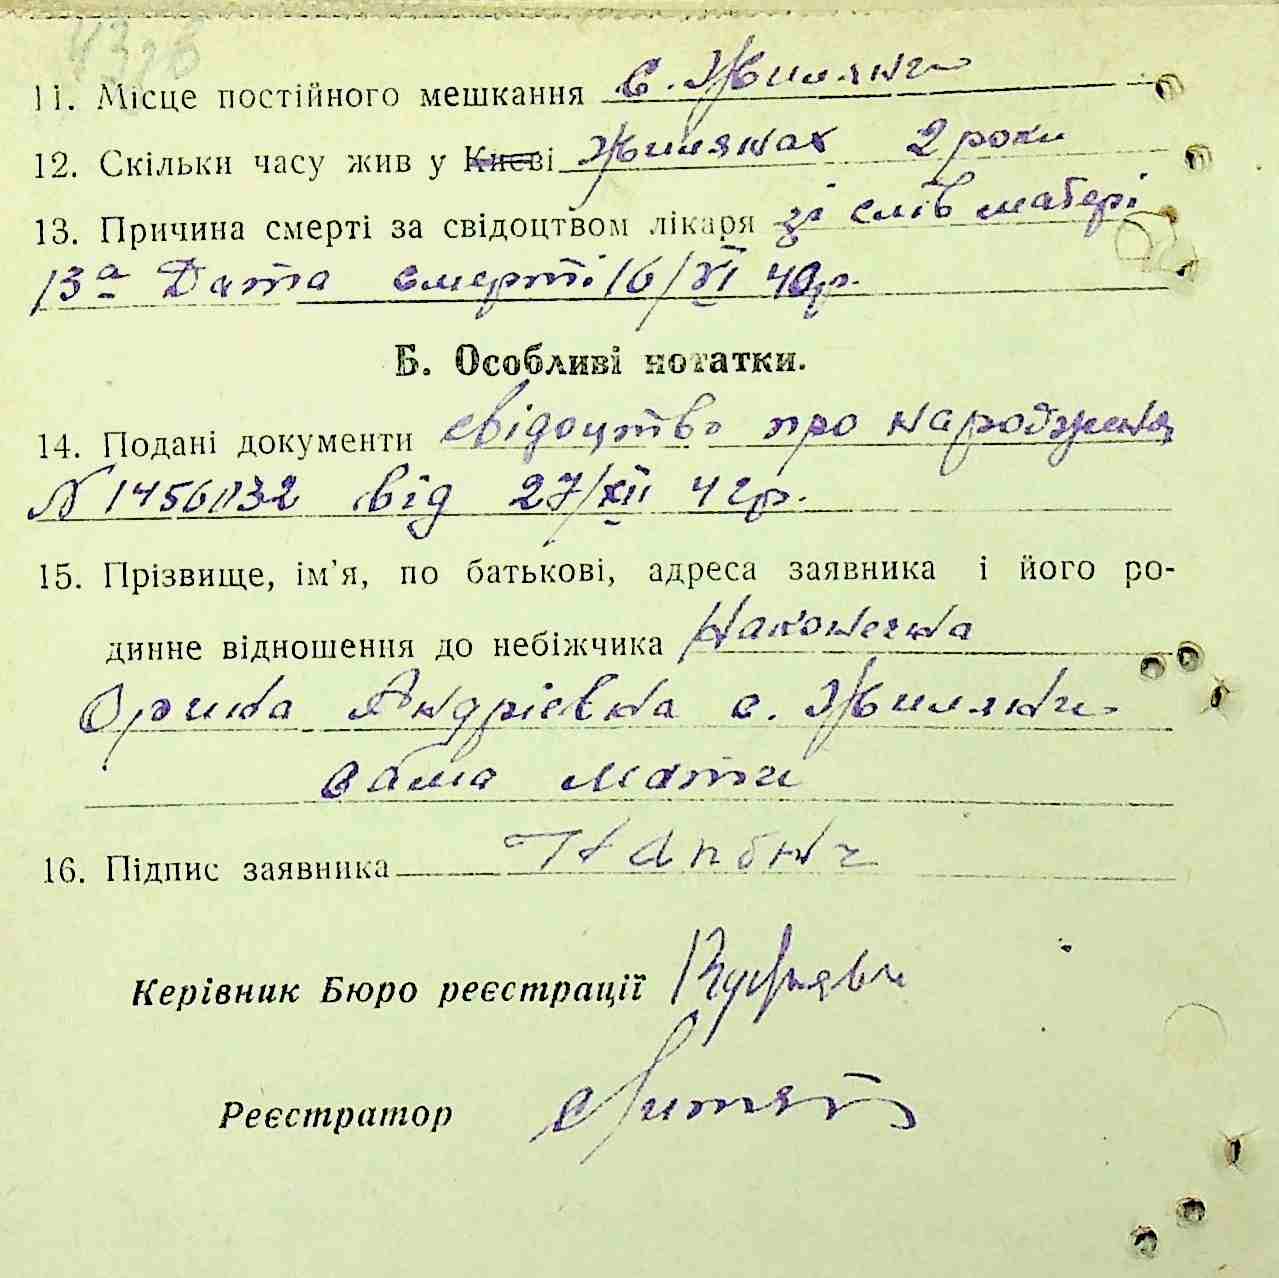 11. Місце постійного мешкання с. Жиляни
12. Скільки часу жив у Києві Жилянах 2 роки
13. Причина смерті за свідоцтвом лікаря зі слів матері
13а Дата смерті 16/VI 42р.
Б. Особливі нотатки.
14. Подані документи свідоцтво про народження
N 1456132 від 27/XII 42р.
15. Прізвище, ім'я, по батькові, адреса заявника і його ро-
динне відношення до небіжчика Наконечна
Орина Андріевна с. Жиляни
сама мати
16. Підпис заявника
Керівник Бюро реєстрації
Реєстратор